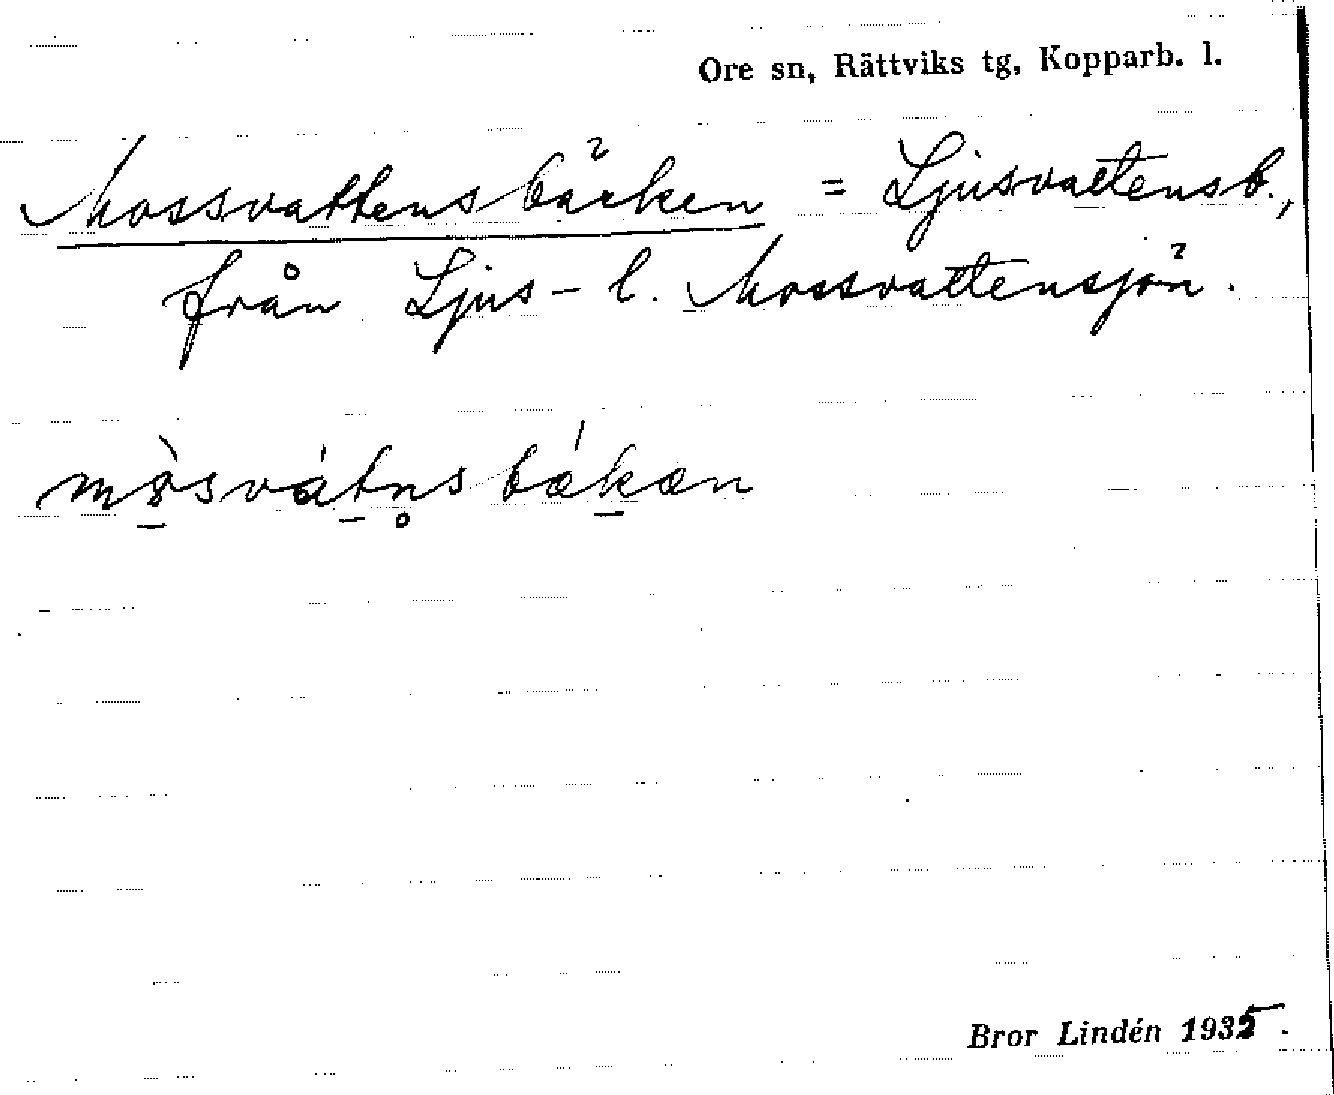 Ore sn, Rättviks tg, Kopparb. l.
Mossvattensbäcken = Ljusvattensb.,
från Ljus- l. Mossvattensjön.
mòsvátn̥sbækæn
Bror Lindén 1935.